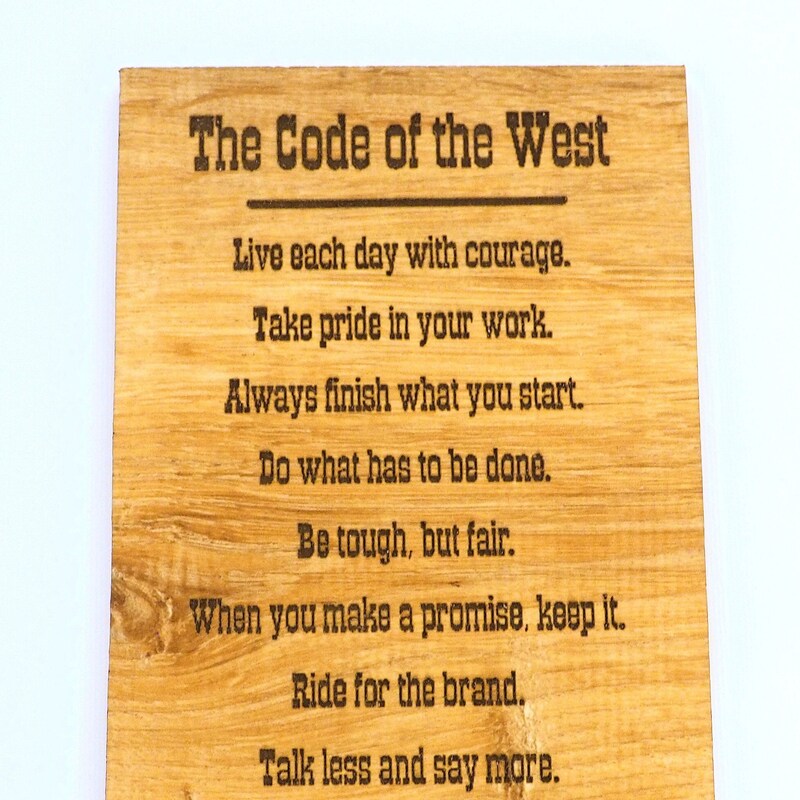 The Code of the West
Live each day with courage.
Take pride in your work.
Always finish what you start.
Do what has to be done.
Be tough, but fair.
When you make a promise, keep it.
Ride for the brand.
Talk less and say more.